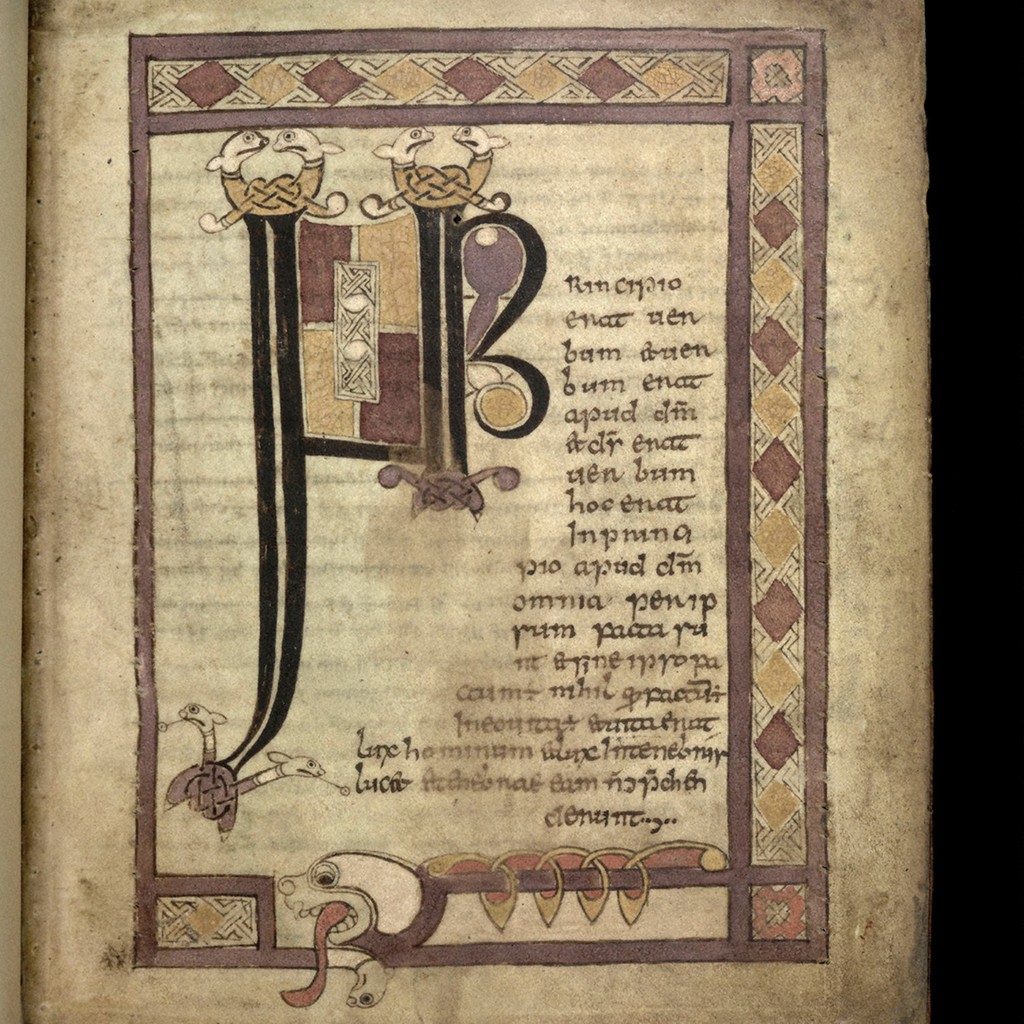 INP
Rincipio
erat uer
bum &uer
bum erat
apud dm̄
&ds̄ erat
uer bum
hoc erat
Inprinci
pio apud dm̄
omnia per ip
sum facta su
nt &sine ipso fa
ctum ÷ nihil factum ÷
Ineouita ÷ &uita erat
lux hominum &lux Intenebris
luc& &tenebrae eam n̄
derunt